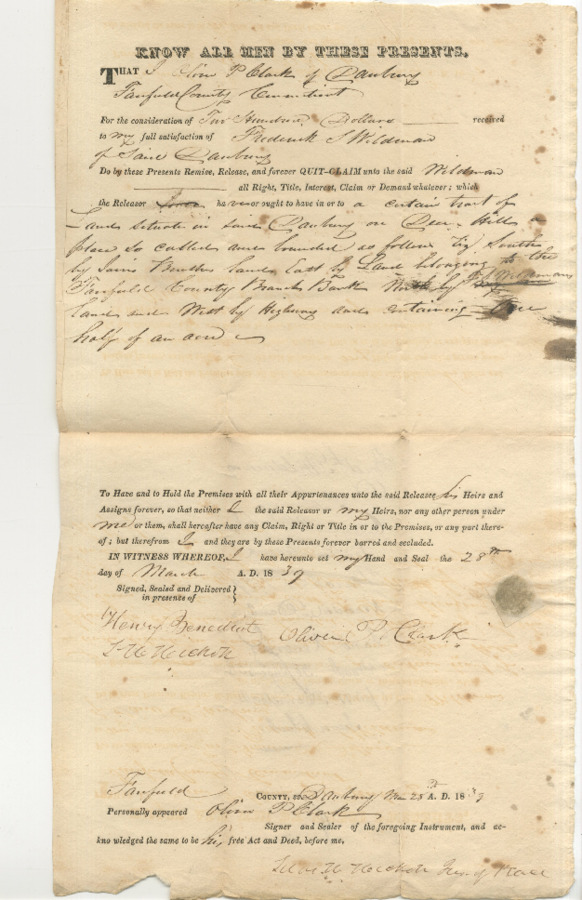 KNOW ALL MEN BY THESE PRESENTS.
THAT I Oliver P Clark of Danbury
Fairfield County Connecticut
For the consideration of Two Hundred Dollars received
to my full satisfaction of Frederick S Wildman
of Said Danbury
Do by these Presents Remise, Release, and forever QUIT-CLAIM unto the said Wildman
all Right, Title, Interest, Claim or Demand whatever; which
the Releasor have or ought to have in or to a certain tract of
Land situate in said Danbury on Deer Hill a
place so called and bounded as follows Viz South
by land East by Land belonging to the
Fairfield County Branch Bank North by
land and West by Highway and containing
half of an acre
To Have and to Hold the Premises with all their Appurtenances unto the said Releasee his Heirs and
Assigns forever, so that neither I the said Releasor or my Heirs, nor any other person under
me or them, shall hereafter have any Claim, Right or Title in or to the Premises, or any part there-
of; but therefrom I and they are by these Presents forever barred and secluded.
IN WITNESS WHEREOF, I have hereunto set my Hand and Seal the 28th
day of March A. D. 1839
Signed, Sealed and Delivered
in presence of
Henry Benedict Oliver P. Clark
Fairfield COUNTY, ss. Danbury Mar 28th A. D. 1839
Personally appeared Oliver P Clark
Signer and Sealer of the foregoing Instrument, and ac-
knowledged the same to be his free Act and Deed, before me,
Jus of Peace